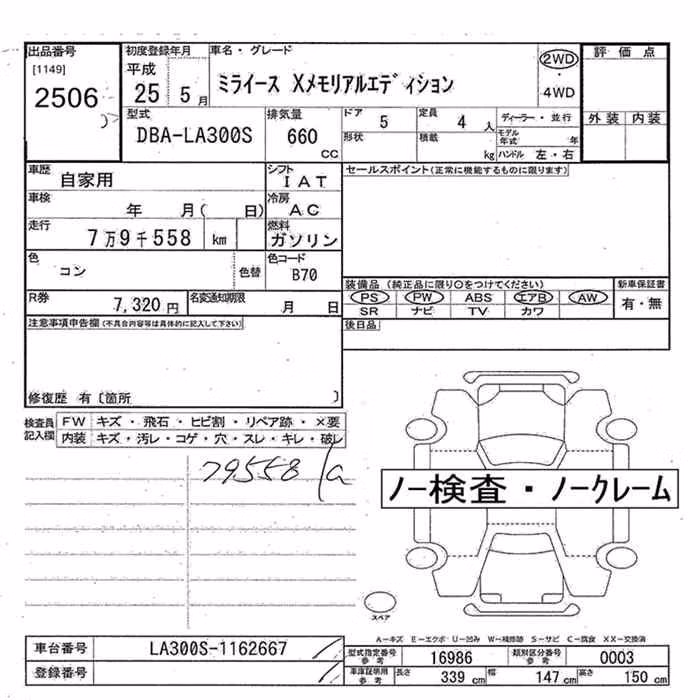 出品番号
[1149]
2506
初度登録年月
平成
25 5月
車名・グレード
ミライース Xメモリアルエディション
2WD
・
4WD
評価点
外装 内装
型式
DBA-LA300S
排気量
660
cc
ドア 5
定員 4 人
ディーラー・並行
形状
積載 kg
モデル年式 年
ハンドル 左・右
車歴
自家用
シフト
IAT
セールスポイント(正常に機能するものに限ります)
車検
年 月( 日)
冷房
AC
走行
7万9千558 km
燃料
ガソリン
色
コン
色替
色コード
B70
装備品(純正品に限り○をつけてください)
新車保証書
PS PW ABS エアB AW
SR ナビ TV カワ
有・無
R券
7,320円
名変通知期限
月 日
後日品
注意事項申告欄(不具合内容等は具体的に記入して下さい)
修復歴 有〔箇所 〕
検査員
記入欄
FW キズ・飛石・ヒビ割・リペア跡・×要
内装 キズ・汚レ・コゲ・穴・スレ・キレ・破レ
79558
ノー検査・ノークレーム
スペア
A-キズ E-エクボ U-凹み W-補修跡 S-サビ C-腐食 XX-交換済
車台番号
LA300S-1162667
登録番号
型式指定番号
参考
16986
類別区分番号
参考
0003
車庫証明用
参考
長さ 339 cm
幅 147 cm
高さ 150 cm